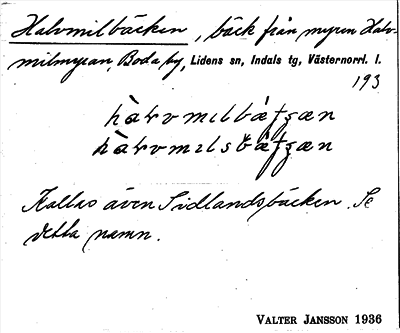 Halvmilbäcken, bäck från myren Halv-
milmyran, Boda by, Lidens sn, Indals tg, Västernorrl. l.
193
Kallas även Sidlandsbäcken. Se
detta namn.
VALTER JANSSON 1936